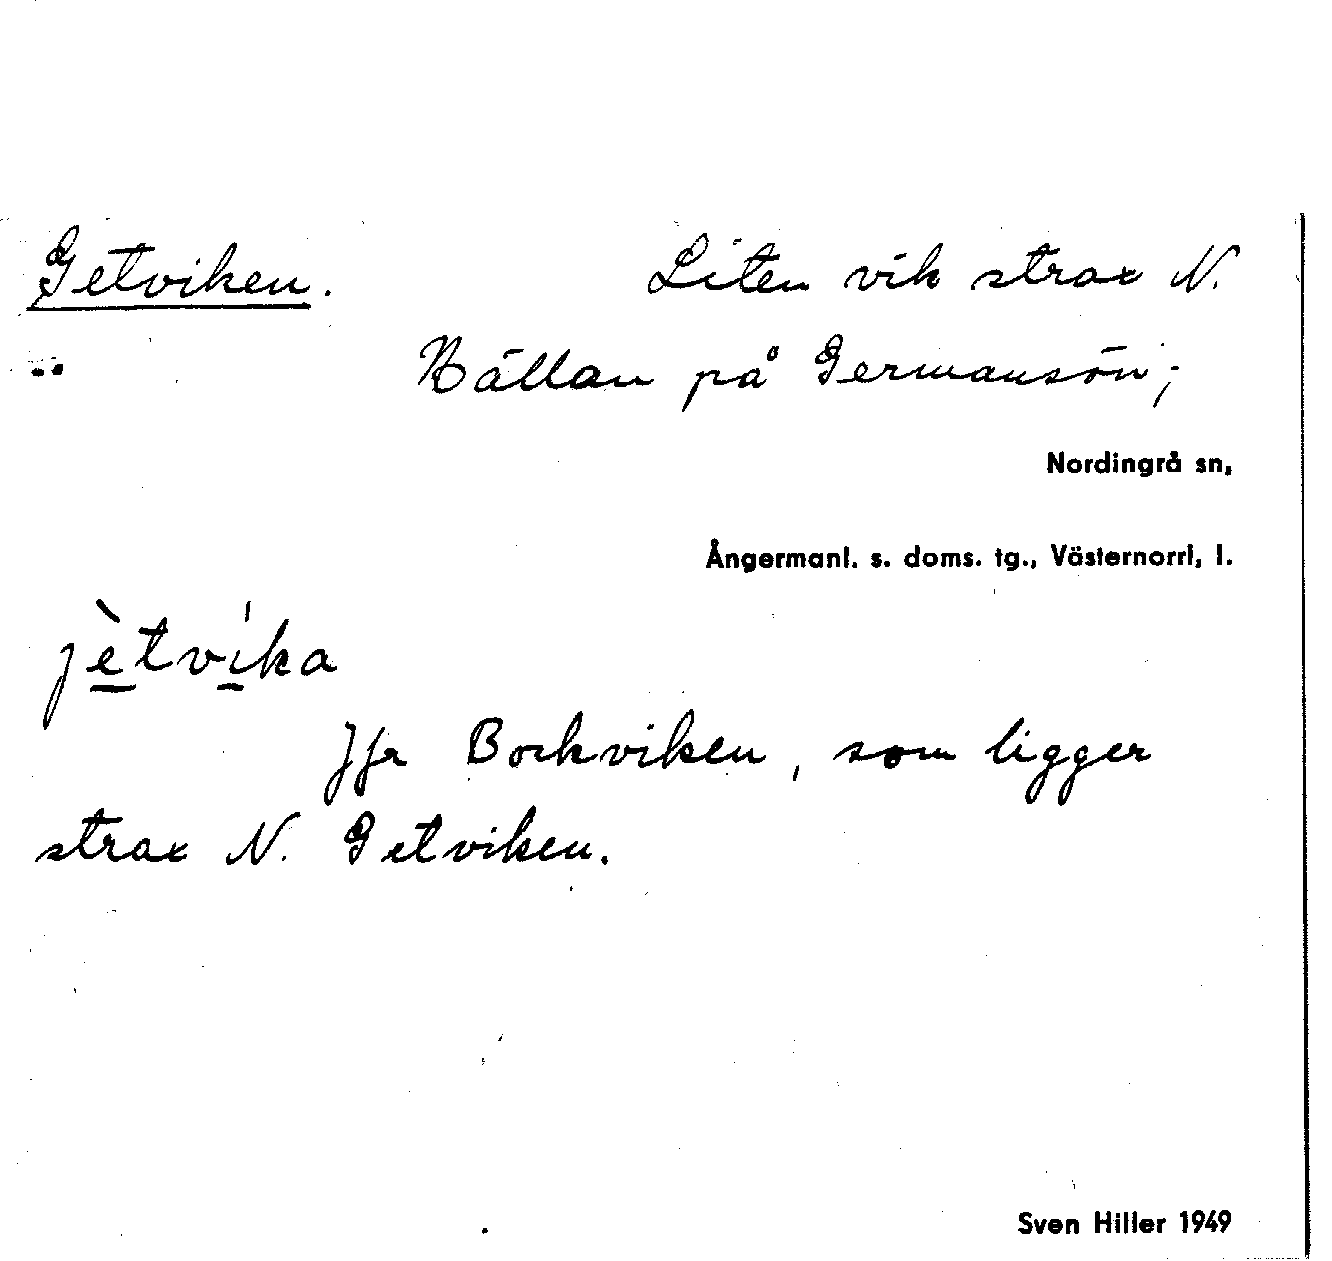 Getviken. Liten vik strax N.
Hällan på Germansön;
Nordingrå sn,
Ångermanl. s. doms. tg., Västernorrl, l.
jètvíka
Jfr Bockviken, som ligger
strax N. Getviken.
Sven Hiller 1949